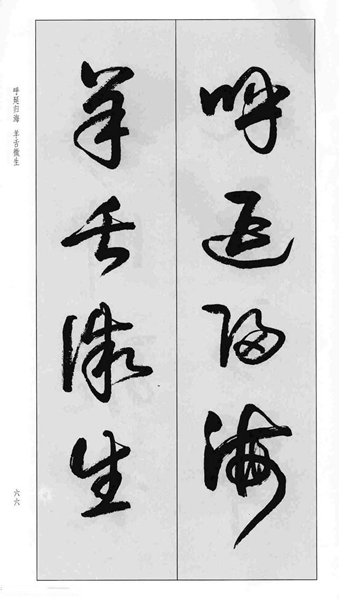 呼延归海
羊舌微生
呼延归海 羊舌微生
六六